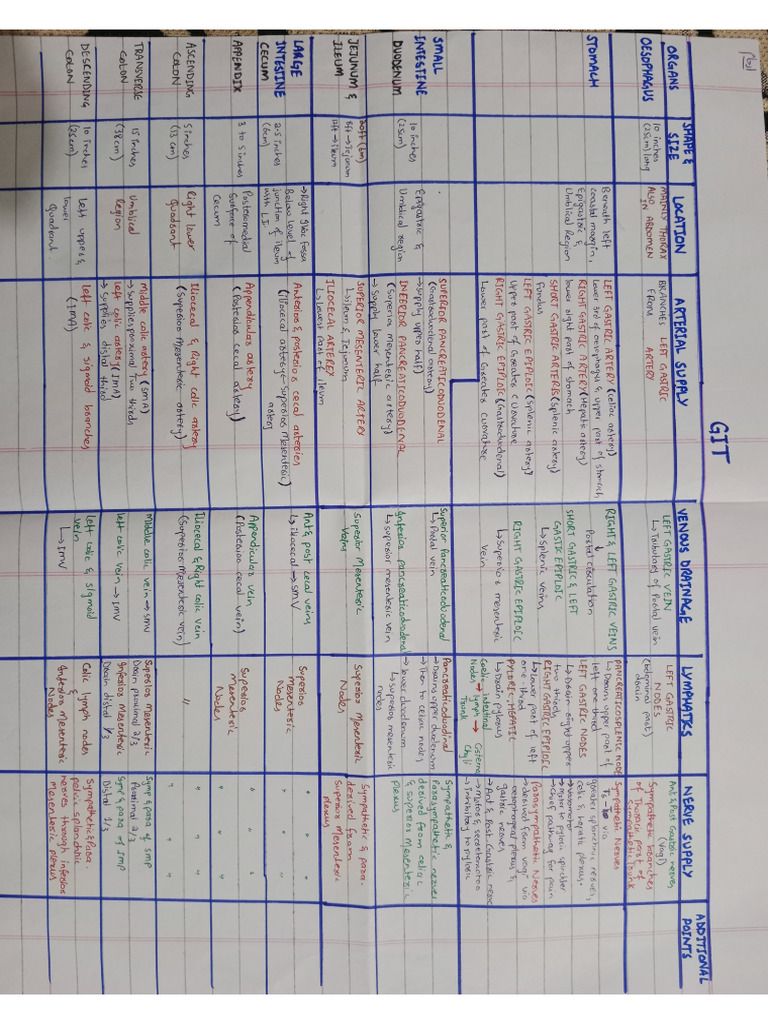 GIT
ORGANS
SHAPE &
SIZE
LOCATION
ARTERIAL SUPPLY
VENOUS DRAINAGE
LYMPHATICS
NERVE SUPPLY
ADDITIONAL
POINTS
OESOPHAGUS
10 inches
(25cm) long
MAINLY THORAX
ALSO IN ABDOMEN
BRANCHES LEFT GASTRIC
FROM ARTERY
LEFT GASTRIC VEIN
↳ Tributary of Portal vein
LEFT GASTRIC
NODES
(abdominal part)
drain
Ant & Post Gastric nerves
(Vagi)
Sympathetic branches
of Thoracic part of
Sympathetic trunk
STOMACH
Beneath left
costal margin,
Epigastric &
Umblical Region
LEFT GASTRIC ARTERY (celiac artery)
Lower 3rd of oesophagus & upper part of stomach
RIGHT GASTRIC ARTERY (Hepatic artery)
lower right part of stomach
SHORT GASTRIC ARTERIES (Splenic artery)
Fundus
LEFT GASTRIC EPIPLOIC (Splenic artery)
Upper part of Greater curvature
RIGHT GASTRIC EPIPLOIC (Gastroduodenal)
Lower part of Greater curvature
RIGHT & LEFT GASTRIC VEINS
↓
Portal circulation
SHORT GASTRIC & LEFT
GASTRIC EPIPLOIC
↳ splenic veins
RIGHT GASTRIC EPIPLOIC
↳ Superior mesenteric
vein
PANCREATICOSPLENIC NODE
↳ Drain upper part of
left one third
LEFT GASTRIC NODES
↳ Drain right upper
two thirds
RIGHT GASTRIC EPIPLOIC
↳ lower part of left
one third
PYLORIC-HEPATIC
↳ Drain pylorus
Coeliac → intestinal → Cisterna
Nodes lymph Chyli
Trunk
Sympathetic Nerves
via
greater splanchnic nerves,
celiac & hepatic plexus.
→ vasomotor
→ motor to pyloric sphincter
→ chief pathway for pain
Parasympathetic Nerves
→ derived from vagi via
oesophageal plexus &
gastric nerves
→ Ant & Post Gastric nerve
→ Motor & secretomotor
→ inhibitory to pyloric
SMALL
INTESTINE
DUODENUM
10 inches
(25cm)
Epigastric &
Umblical region
SUPERIOR PANCREATICODUODENAL
(Gastroduodenal artery)
→ supply upper half
INFERIOR PANCREATICODUODENAL
(superior mesenteric artery)
→ supply lower half
Superior Pancreaticoduodenal
↳ Portal vein
Inferior pancreaticoduodenal
↳ superior mesenteric vein
Pancreaticoduodenal
→ Drains upper duodenum
→ Then to celiac nodes
→ lower duodenum
↳ superior mesenteric
nodes
Sympathetic &
Parasympathetic nerves
derived from celiac
& superior mesenteric
plexus
JEJUNUM &
ILEUM
20ft (6m)
8ft → Jejunum
12ft → Ileum
SUPERIOR MESENTERIC ARTERY
↳ Ileum & Jejunum
ILIOCECAL ARTERY
↳ Lowest part of ileum
Superior Mesenteric
Veins
Superior Mesenteric
Nodes
Sympathetic & para.
derived from
Superior Mesenteric
Plexus
LARGE
INTESTINE
CECUM
2.5 inches
(6cm)
→ Right Iliac Fossa
Below level of
junction of ileum
with LI
Anterior & posterior cecal arteries
(Iliocecal artery - Superior Mesenteric)
artery
Ant & post cecal veins
↳ iliocecal → SMV
Superior
Mesenteric
Nodes
" " "
APPENDIX
3 to 5 inches
Posteromedial
Surface of
Cecum
Appendicular artery
(Posterior cecal artery)
Appendicular vein
(Posterior cecal vein)
Superior
Mesenteric
Nodes
" " "
ASCENDING
COLON
5 inches
(13 cm)
Right lower
Quadrant
Iliocecal & Right colic artery
(Superior Mesenteric artery)
Iliocecal & Right colic vein
(Superior Mesenteric vein)
"
" " "
TRANSVERSE
COLON
15 inches
(38cm)
Umblical
Region
Middle colic artery (SMA)
→ supplies proximal two thirds
left colic artery (IMA)
→ supplies distal third
Middle colic vein → SMV
left colic vein → IMV
Superior mesenteric
Drain proximal 2/3
Inferior Mesenteric
Drain distal 1/3
Symp & para of SMP
Proximal 2/3
Symp & para of IMP
Distal 1/3
DESCENDING
COLON
10 inches
(25cm)
Left upper &
lower
quadrant
Left colic & sigmoid branches
(IMA)
Left colic & sigmoid
vein
↳ IMV
Colic lymph nodes
&
Inferior Mesenteric
Nodes
Sympathetic & Para.
pelvic splanchnic
nerves through inferior
mesenteric plexus